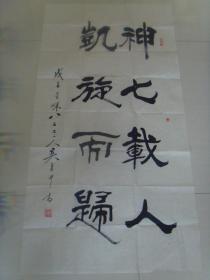 神七載人
凱旋而歸
戊子